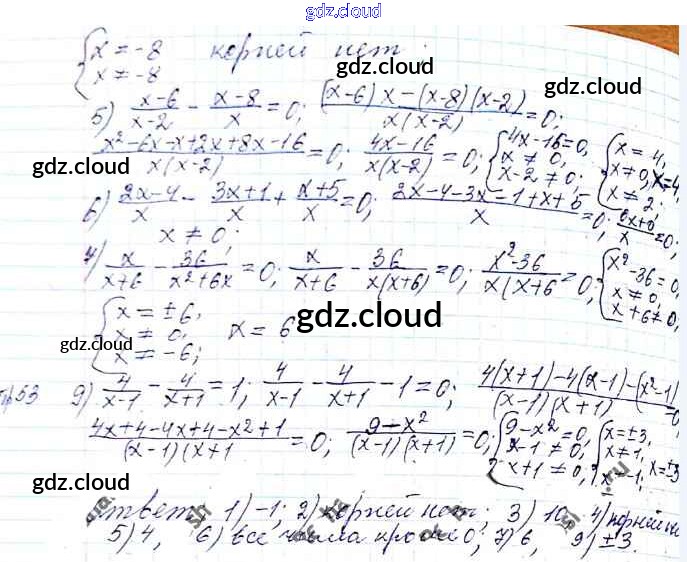 gdz.cloud
gdz.cloud
{x = -8 корней нет;
x ≠ -8
gdz.cloud
gdz.cloud
5) (x-6)/(x-2) - (x-8)/x = 0; ((x-6)x-(x-8)(x-2))/(x(x-2)) = 0;
gdz.cloud
(x²-6x-x²+2x+8x-16)/(x(x-2)) = 0; (4x-16)/(x(x-2)) = 0; {4x-16=0, x ≠ 0, x-2 ≠ 0; {x = 4, x ≠ 0, x ≠ 2; x=4,
gdz.cloud
6) (2x-4)/x - (3x+1)/x + (x+5)/x = 0; (2x-4-3x-1+x+5)/x = 0; (0x+0)/x = 0;
x ≠ 0;
7) x/(x+6) - 36/(x²+6x) = 0; x/(x+6) - 36/(x(x+6)) = 0; (x²-36)/(x(x+6 = 0; {x²-36=0, x ≠ 0, x+6 ≠ 0,
{x = ±6, x ≠ 0, x ≠ -6; x = 6
gdz.cloud
gdz.cloud
9) 4/(x-1) - 4/(x+1) = 1; 4/(x-1) - 4/(x+1) - 1 = 0; (4(x+1)-4(x-1)-(x²-1))/((x-1)(x+1)) = 0
gdz.cloud
(4x+4-4x+4-x2+1)/((x-1)(x+1 = 0; (9-x²)/((x-1)(x+1)) = 0; {9-x²=0, x-1 ≠ 0, x+1 ≠ 0, {x=±3, x≠1, x≠-1, x=±3
gdz.cloud
gdz.cloud
Ответ: 1) -1; 2) корней нет; 3) 10, 4) корней
5) 4, 6) все числа кроме 0; 7) 6, 9) ±3.